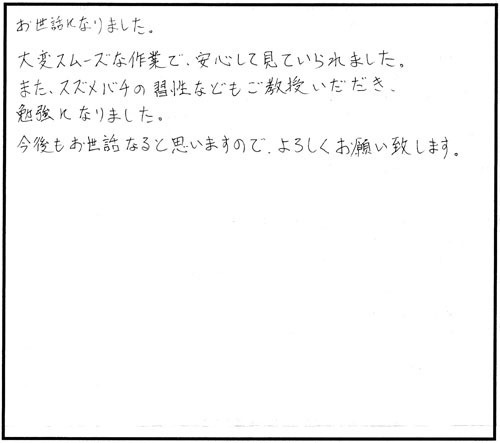 お世話になりました。
大変スムーズな作業で、安心して見ていられました。
また、スズメバチの習性などもご教授いだだき、
勉強になりました。
今後もお世話なると思いますので、よろしくお願い致します。